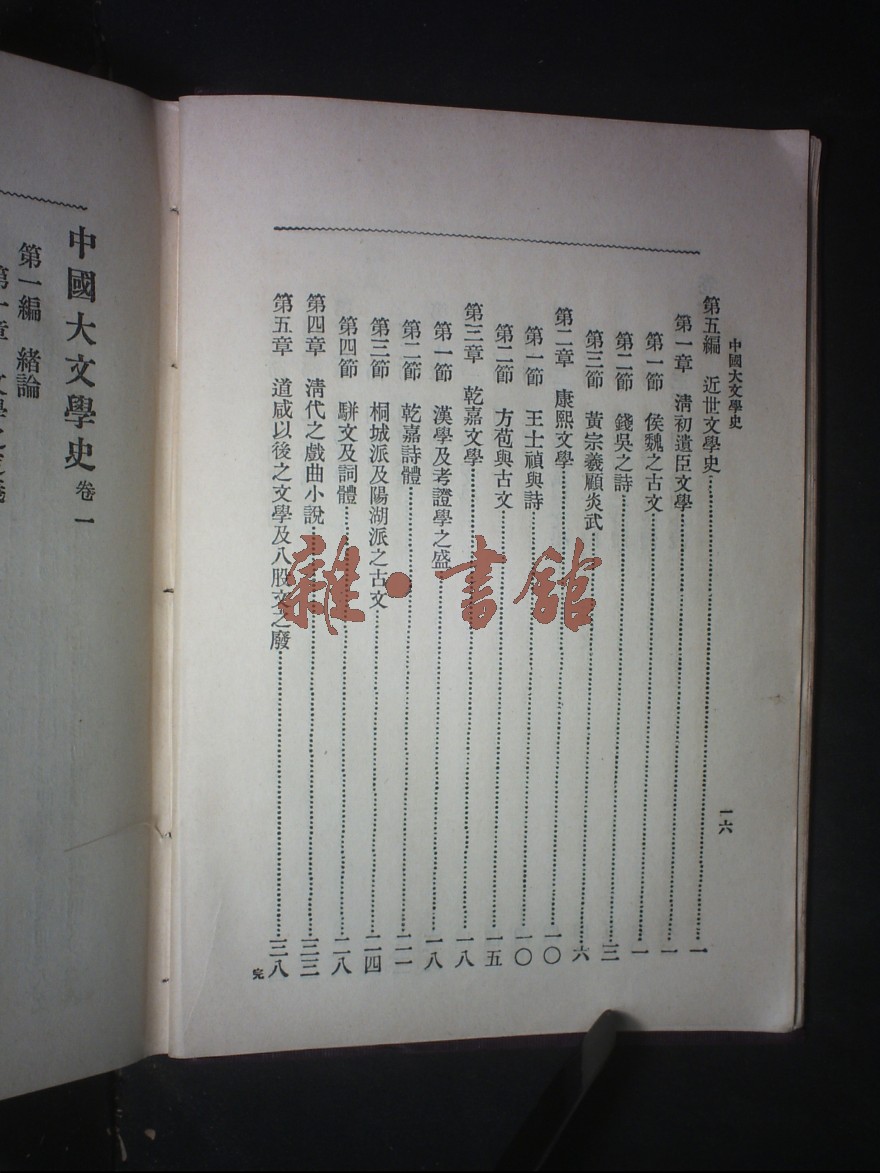 中國大文學史
一六
第五編 近世文學史 一
第一章 淸初遺臣文學 一
第一節 侯魏之古文 一
第二節 錢吳之詩 三
第三節 黃宗羲顧炎武 六
第二章 康熙文學 一〇
第一節 王士禎與詩 一〇
第二節 方苞與古文 一五
第三章 乾嘉文學 一八
第一節 漢學及考證學之盛 一八
第二節 乾嘉詩體 二一
第三節 桐城派及陽湖派之古文 二四
第四節 駢文及詞體 二八
第四章 淸代之戲曲小說 三三
第五章 道咸以後之文學及八股文之廢 三八
完
雜·書館
中國大文學史 卷一
第一編 緒論
第一章 文學之